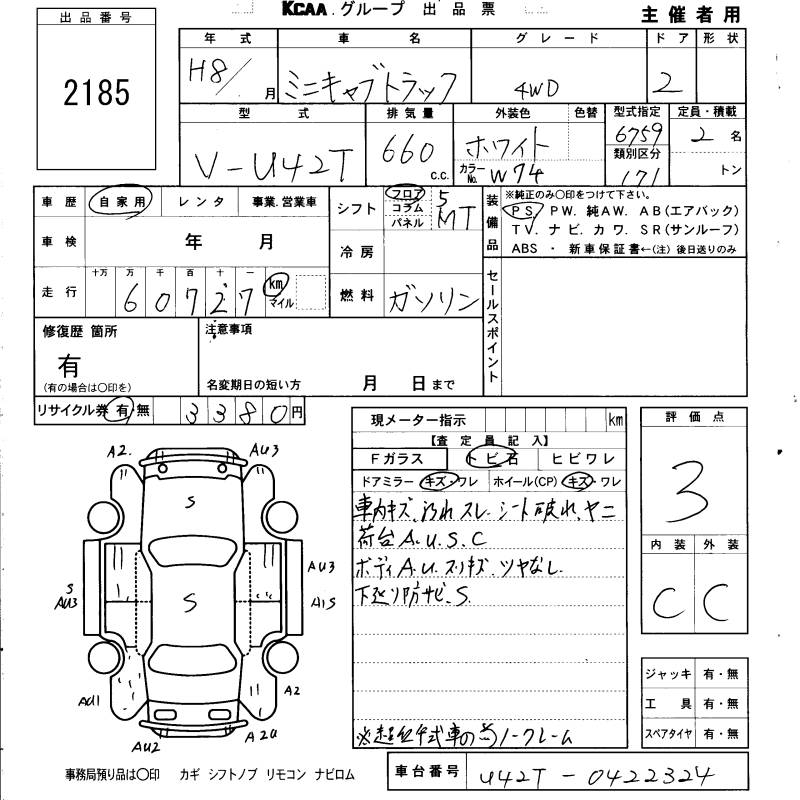 KCAA.グループ 出品票
主催者用
出品番号
2185
年式 車名 グレード ドア 形状
H8/ 月 ミニキャブトラック 4WD 2
型式 排気量 外装色 色替 型式指定 定員・積載
V-U42T 660 c.c. ホワイト 6759 2名
カラーNo. W74 類別区分 171 トン
車歴 自家用 レンタ 事業.営業車
シフト フロア コラム パネル 5 MT
装備品 ※純正のみ〇印をつけて下さい。
PS. PW. 純AW. AB(エアバック)
TV. ナビ. カワ. SR(サンルーフ)
ABS ・ 新車保証書←(注)後日送りのみ
車検 年 月
冷房
走行 十万 万 千 百 十 一
60727 km マイル
燃料 ガソリン
セールスポイント
修復歴 箇所 注意事項
有
(有の場合は〇印を) 名変期日の短い方 月 日まで
リサイクル券 有・無 3380円
現メーター指示 km
【査定員記入】
Fガラス トビ石 ヒビワレ
ドアミラー キズ・ワレ ホイール(CP) キズ・ワレ
車内キズ、汚れ スレ シート破れ、ヤニ
荷台A.U.S.C
ボディA.U.スリキズ、ツヤなし
下廻り防サビ、S.
※超低年式車の為ノークレーム
評価点
3
内装 外装
C C
ジャッキ 有・無
工具 有・無
スペアタイヤ 有・無
A2. AU3
S
S AU3
AU3
S
A1S
AU1 A2
AU2 A2U
事務局預り品は〇印 カギ シフトノブ リモコン ナビロム
車台番号 U42T-0422324